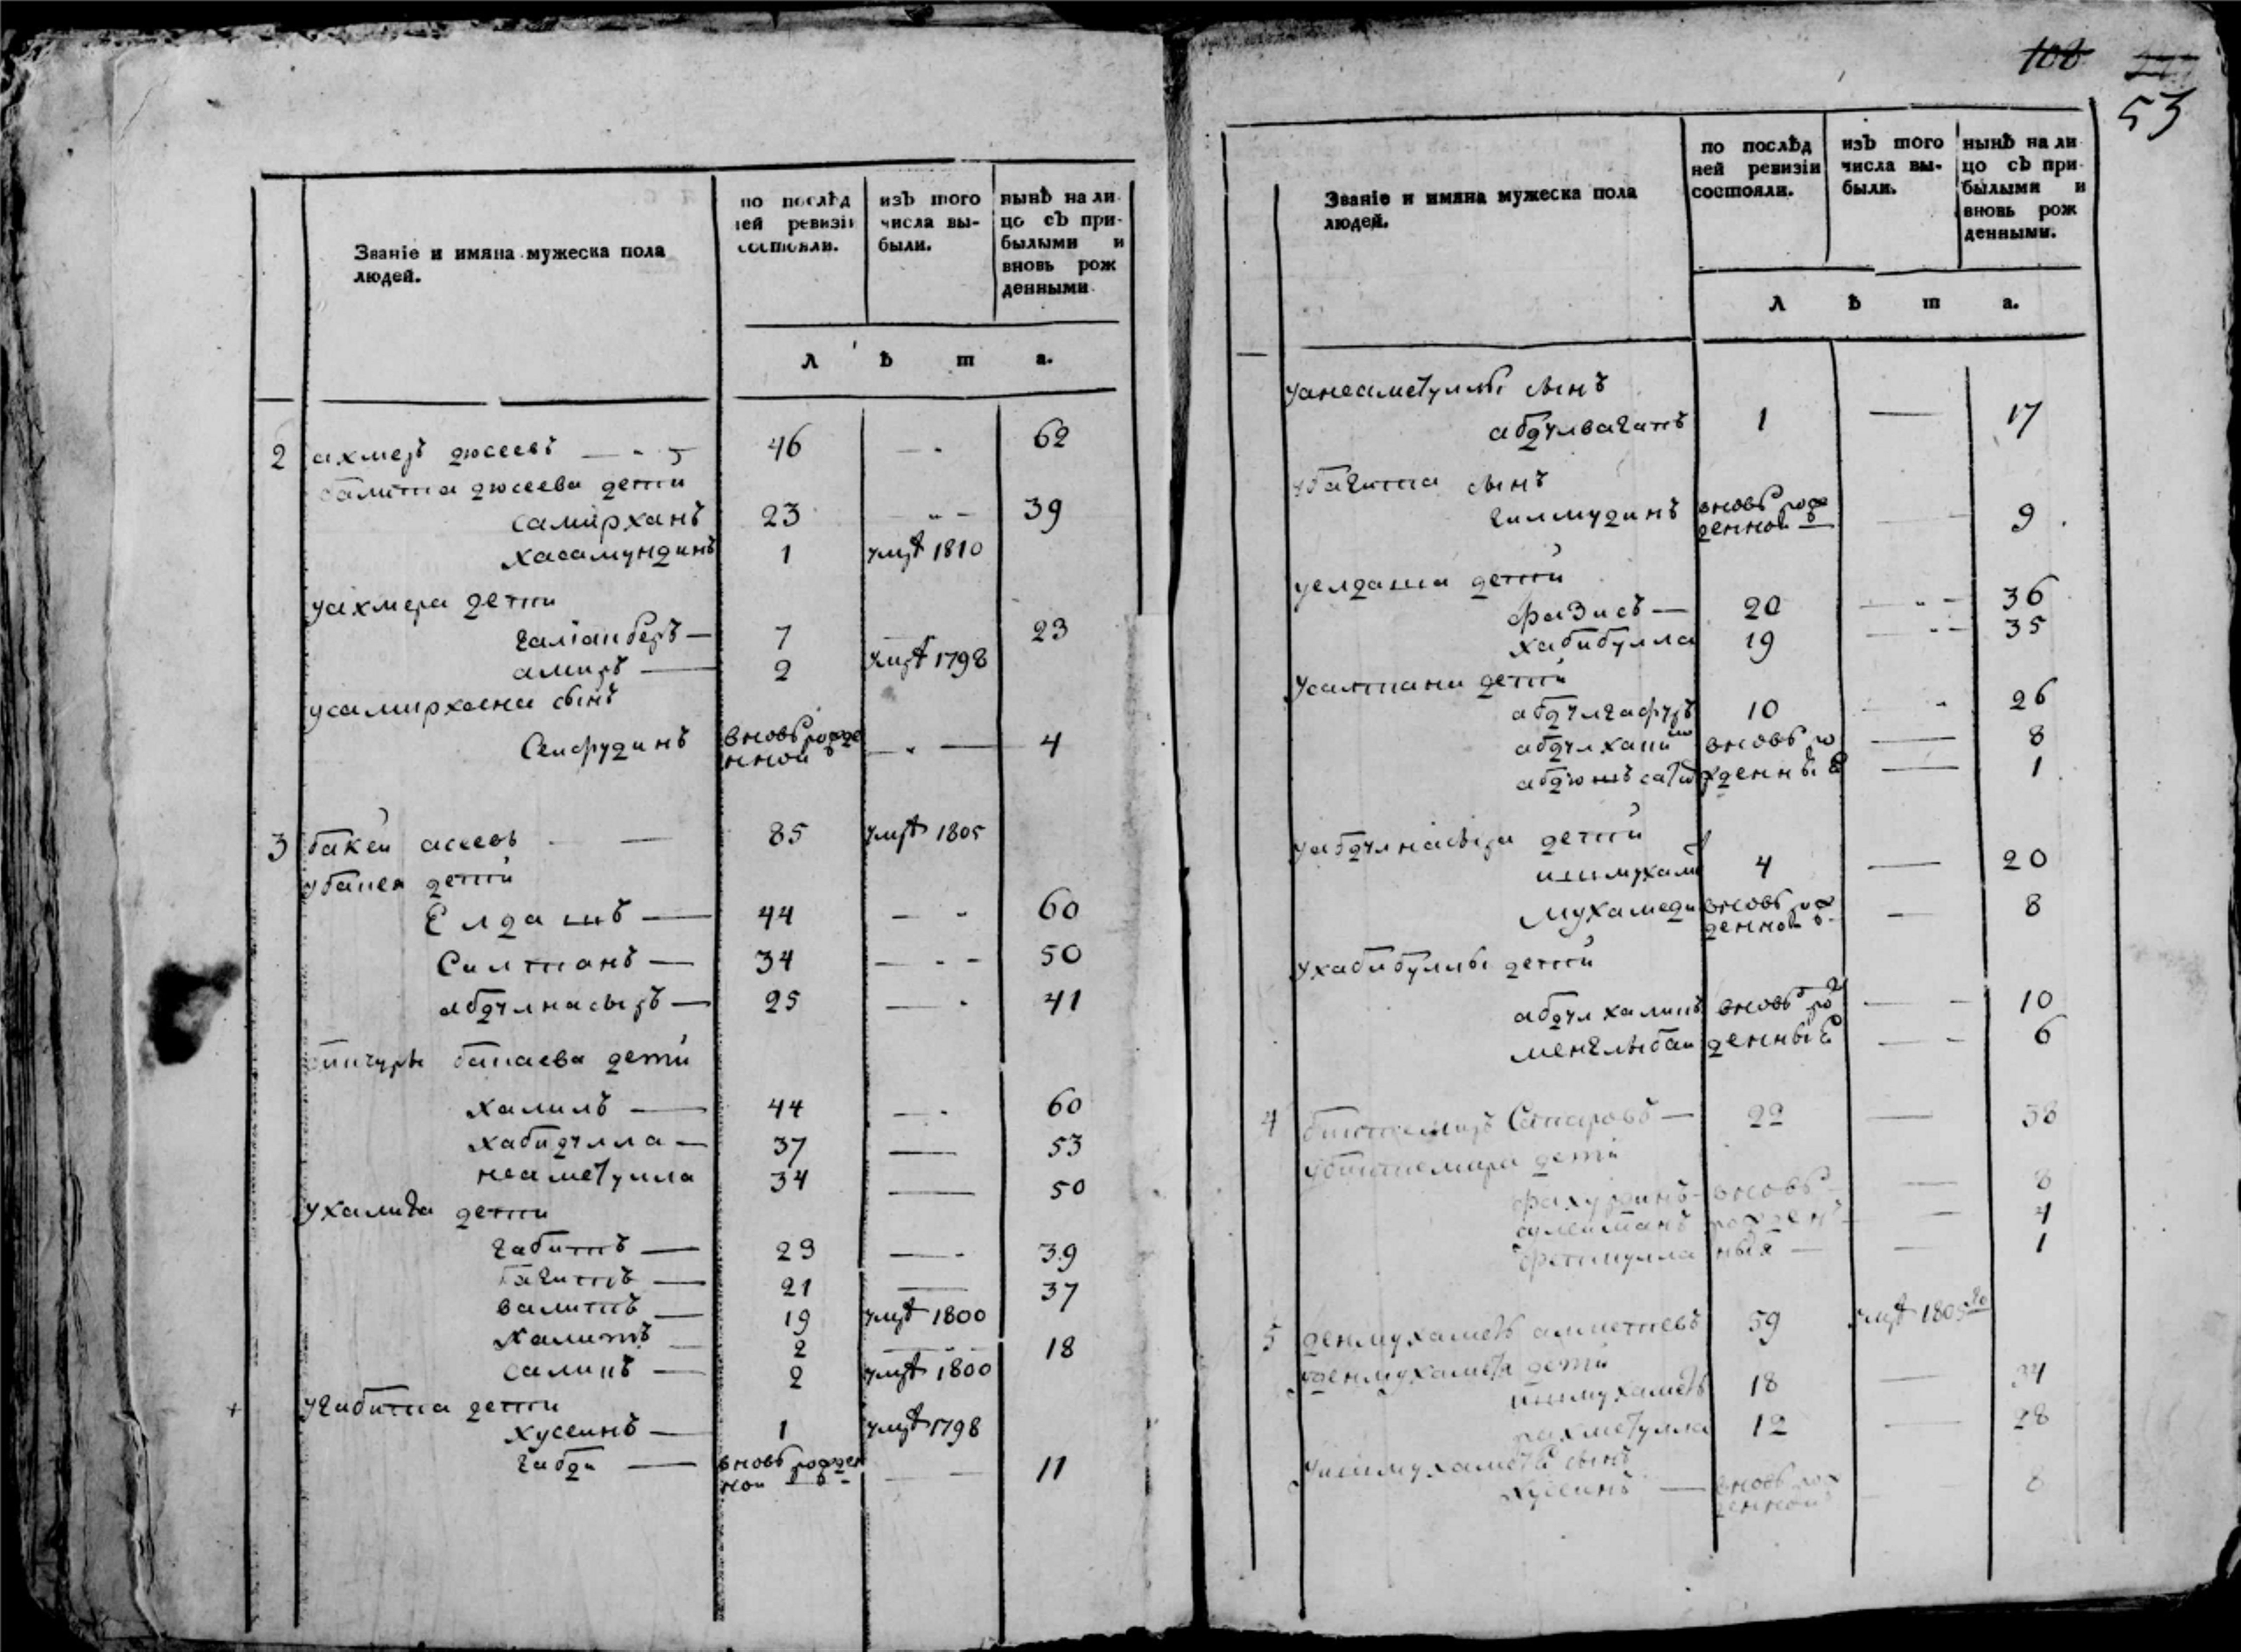 Званіе и имяна мужеска пола
людей.
по послѣд
ней ревизіи
состояли.
изъ того
числа вы-
были.
нынѣ на ли
цо съ при-
былыми и
вновь рож
денными.
Л ѣ т а.
2 ахметъ дюсеевъ 46 62
дюсеева дети
самирханъ 23 39
хасамундинъ 1 умре 1810
уахмера дети
галіанберъ 7 23
амиръ 2 умре 1798
усамирхана сынъ
Сейфудинъ вновь рожде 4
нной
3 бакей асеевъ 85 умре 1805
убакея дети
Елдашъ 44 60
Салтанъ 34 50
абдулнасыръ 25 41
бакаева дети
халилъ 44 60
хабидулла 37 53
неаметулла 34 50
ухалила дети
габитъ 23 39
багитъ 21 37
валитъ 19 умре 1800
халитъ 2 18
салимъ 2 умре 1800
угабита дети
хусеинъ 1 умре 1798
габди вновь рожден 11
ной
108
53
Званіе и имяна мужеска пола
людей.
по послѣд
ней ревизіи
состояли.
изъ того
числа вы-
были.
нынѣ на ли
цо съ при-
былыми и
вновь рож
денными.
Л ѣ т а.
унеаметуллы сынъ
абдулвагапъ 1 17
убагита сынъ
гилмудинъ вновь рож 9
денной
уелдаша дети
фазисъ 20 36
хабибулла 19 35
усалтана дети
абдулгафуръ 10 26
абдулхали вновь ро 8
жденные 1
уабдулнасыра дети
ишмухаме 4 20
мухамеди вновь рож 8
денной
ухабибуллы дети
абдулхалилъ вновь рож 10
менглыбаи денные 6
4 биктемиръ Сапаровъ 22 38
убиктемира дети
фахрудинъ вновь 8
сулейманъ рожден 4
фетхулла ныя 1
5 денмухаметъ 59 умре 1805
уденмухаметя дети
ишмухаметъ 18 34
рахметулла 12 28
уишмухаметя сынъ
хусеинъ вновь рож 8
денной